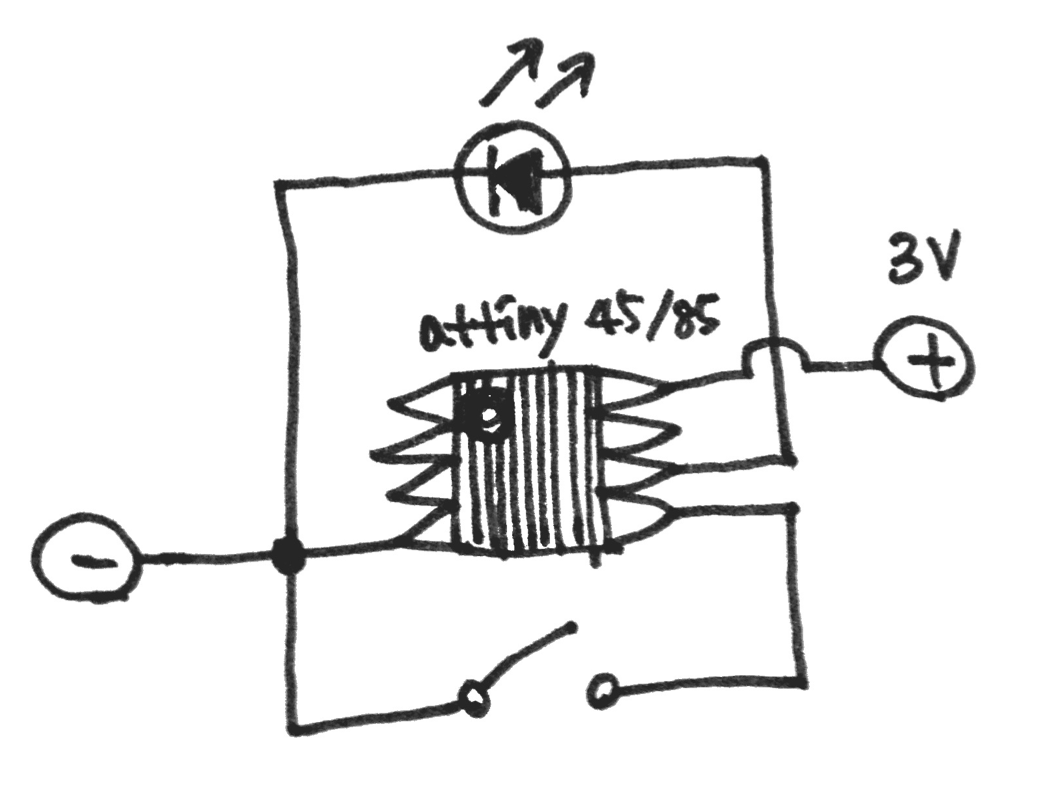 3V
attiny 45/85
+
-